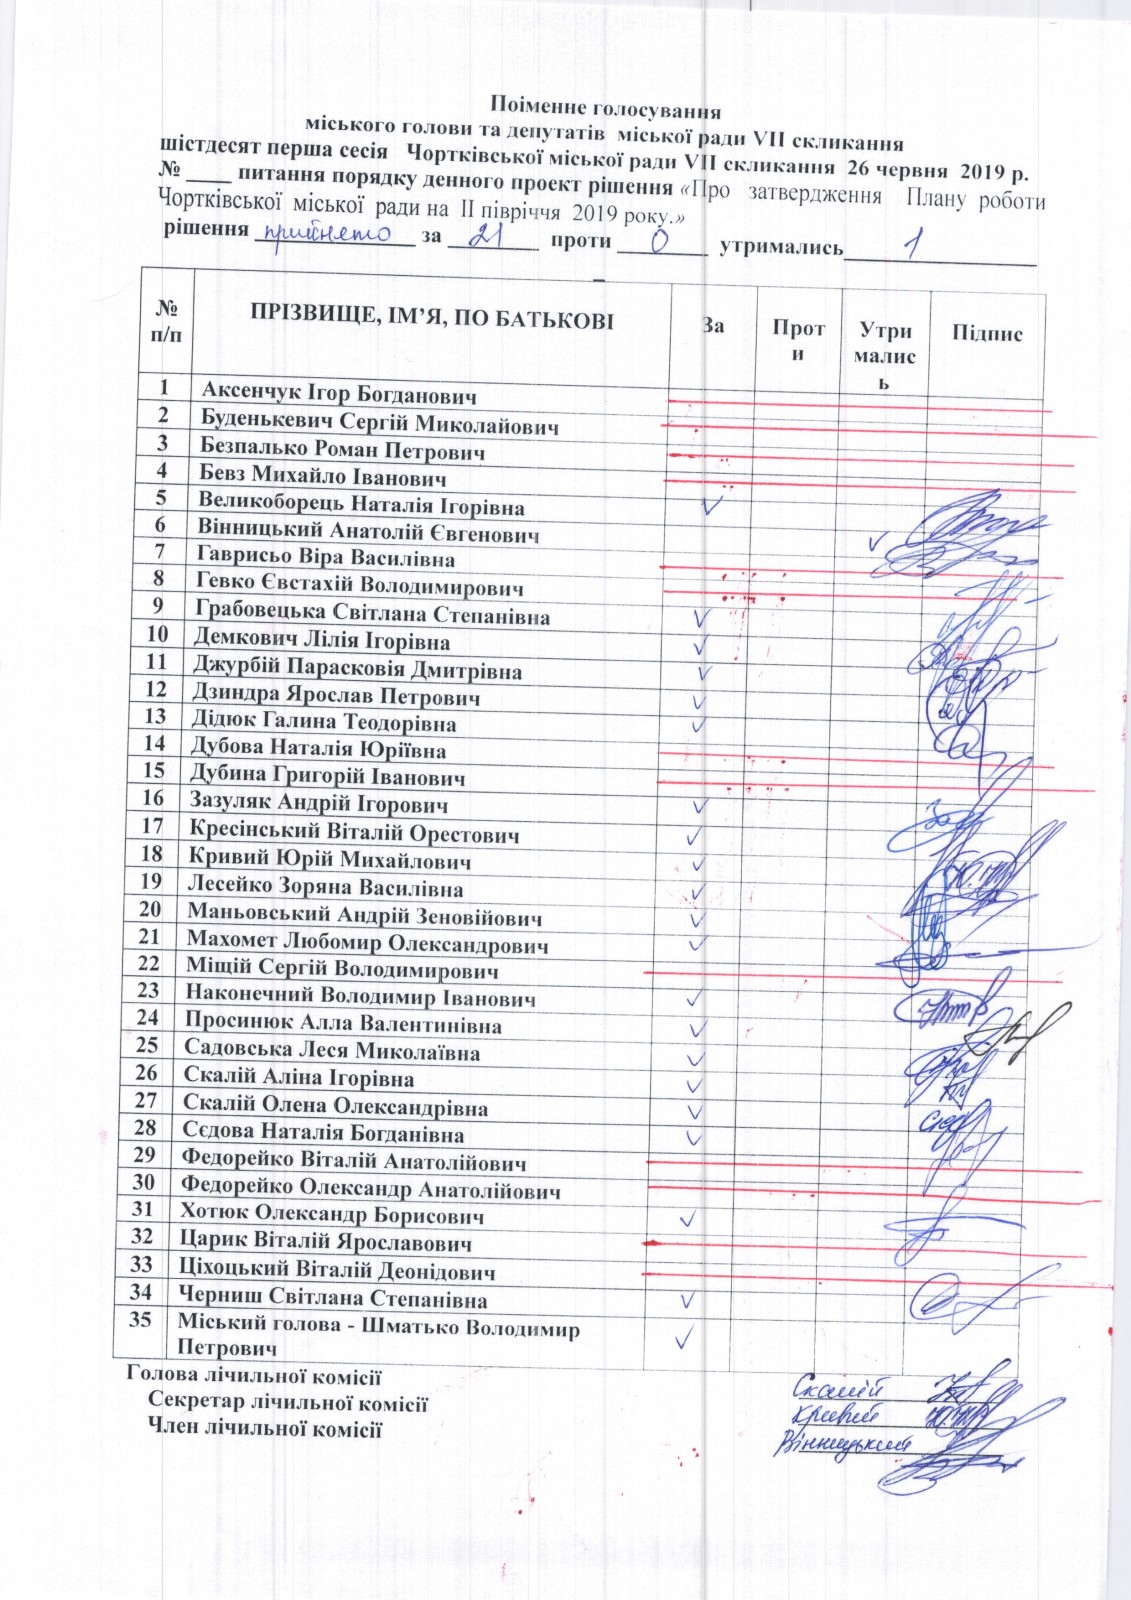 Поіменне голосування
міського голови та депутатів міської ради VII скликання
шістдесят перша сесія Чортківської міської ради VII скликання 26 червня 2019 р.
№ ____ питання порядку денного проект рішення «Про затвердження Плану роботи
Чортківської міської ради на II півріччя 2019 року.»
рішення прийнято за 21 проти 0 утримались 1
№ п/п ПРІЗВИЩЕ, ІМ’Я, ПО БАТЬКОВІ За Проти Утримались Підпис
1 Аксенчук Ігор Богданович
2 Буденькевич Сергій Миколайович
3 Безпалько Роман Петрович
4 Бевз Михайло Іванович
5 Великоборець Наталія Ігорівна ✓
6 Вінницький Анатолій Євгенович ✓
7 Гаврисьо Віра Василівна
8 Гевко Євстахій Володимирович
9 Грабовецька Світлана Степанівна ✓
10 Демкович Лілія Ігорівна ✓
11 Джурбій Парасковія Дмитрівна ✓
12 Дзиндра Ярослав Петрович ✓
13 Дідюк Галина Теодорівна ✓
14 Дубова Наталія Юріївна
15 Дубина Григорій Іванович
16 Зазуляк Андрій Ігорович ✓
17 Кресінський Віталій Орестович ✓
18 Кривий Юрій Михайлович ✓
19 Лесейко Зоряна Василівна ✓
20 Маньовський Андрій Зеновійович ✓
21 Махомет Любомир Олександрович ✓
22 Міщій Сергій Володимирович
23 Наконечний Володимир Іванович ✓
24 Просинюк Алла Валентинівна ✓
25 Садовська Леся Миколаївна ✓
26 Скалій Аліна Ігорівна ✓
27 Скалій Олена Олександрівна ✓
28 Сєдова Наталія Богданівна ✓
29 Федорейко Віталій Анатолійович
30 Федорейко Олександр Анатолійович
31 Хотюк Олександр Борисович ✓
32 Царик Віталій Ярославович
33 Ціхоцький Віталій Деонідович
34 Черниш Світлана Степанівна ✓
35 Міський голова - Шматько Володимир ✓
Петрович
Голова лічильної комісії Скалій
Секретар лічильної комісії Кривий
Член лічильної комісії Вінницький